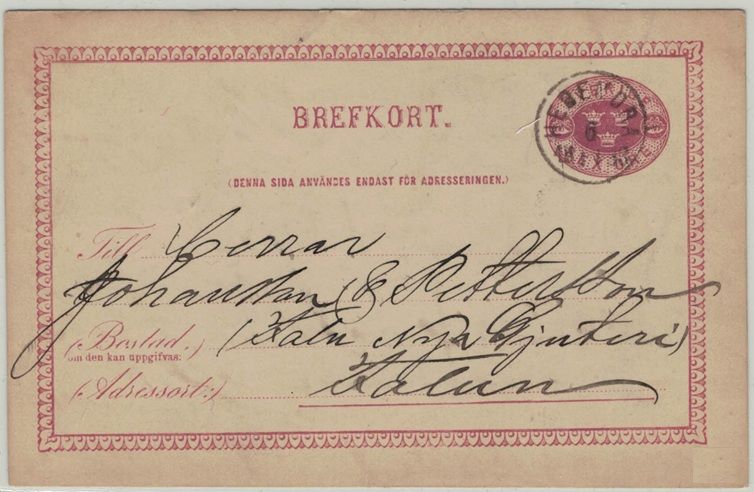 BREFKORT.
HEDEMORA
6
(DENNA SIDA ANVÄNDES ENDAST FÖR ADRESSERINGEN.)
Till Herrar
Johansson & Pettersson
(Bostad.) (Falu Nya Gjuteri)
om den kan uppgifvas:
(Adressort:) Falun